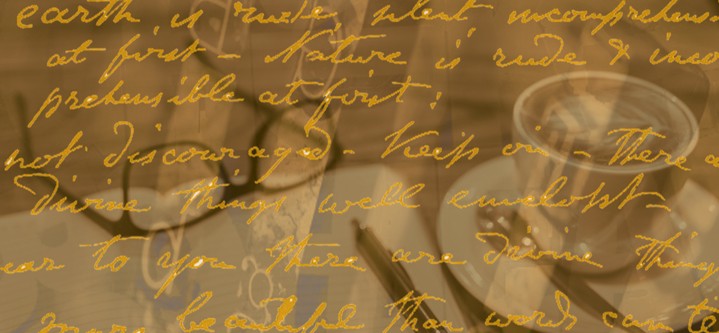 earth is rude, silent incomprehens-
at first - Nature is rude & inco
prehensible at first;
not discouraged - keep on - There a
Divine things well envelopt -
ear to you there are Divine Things
more beautiful than words can te